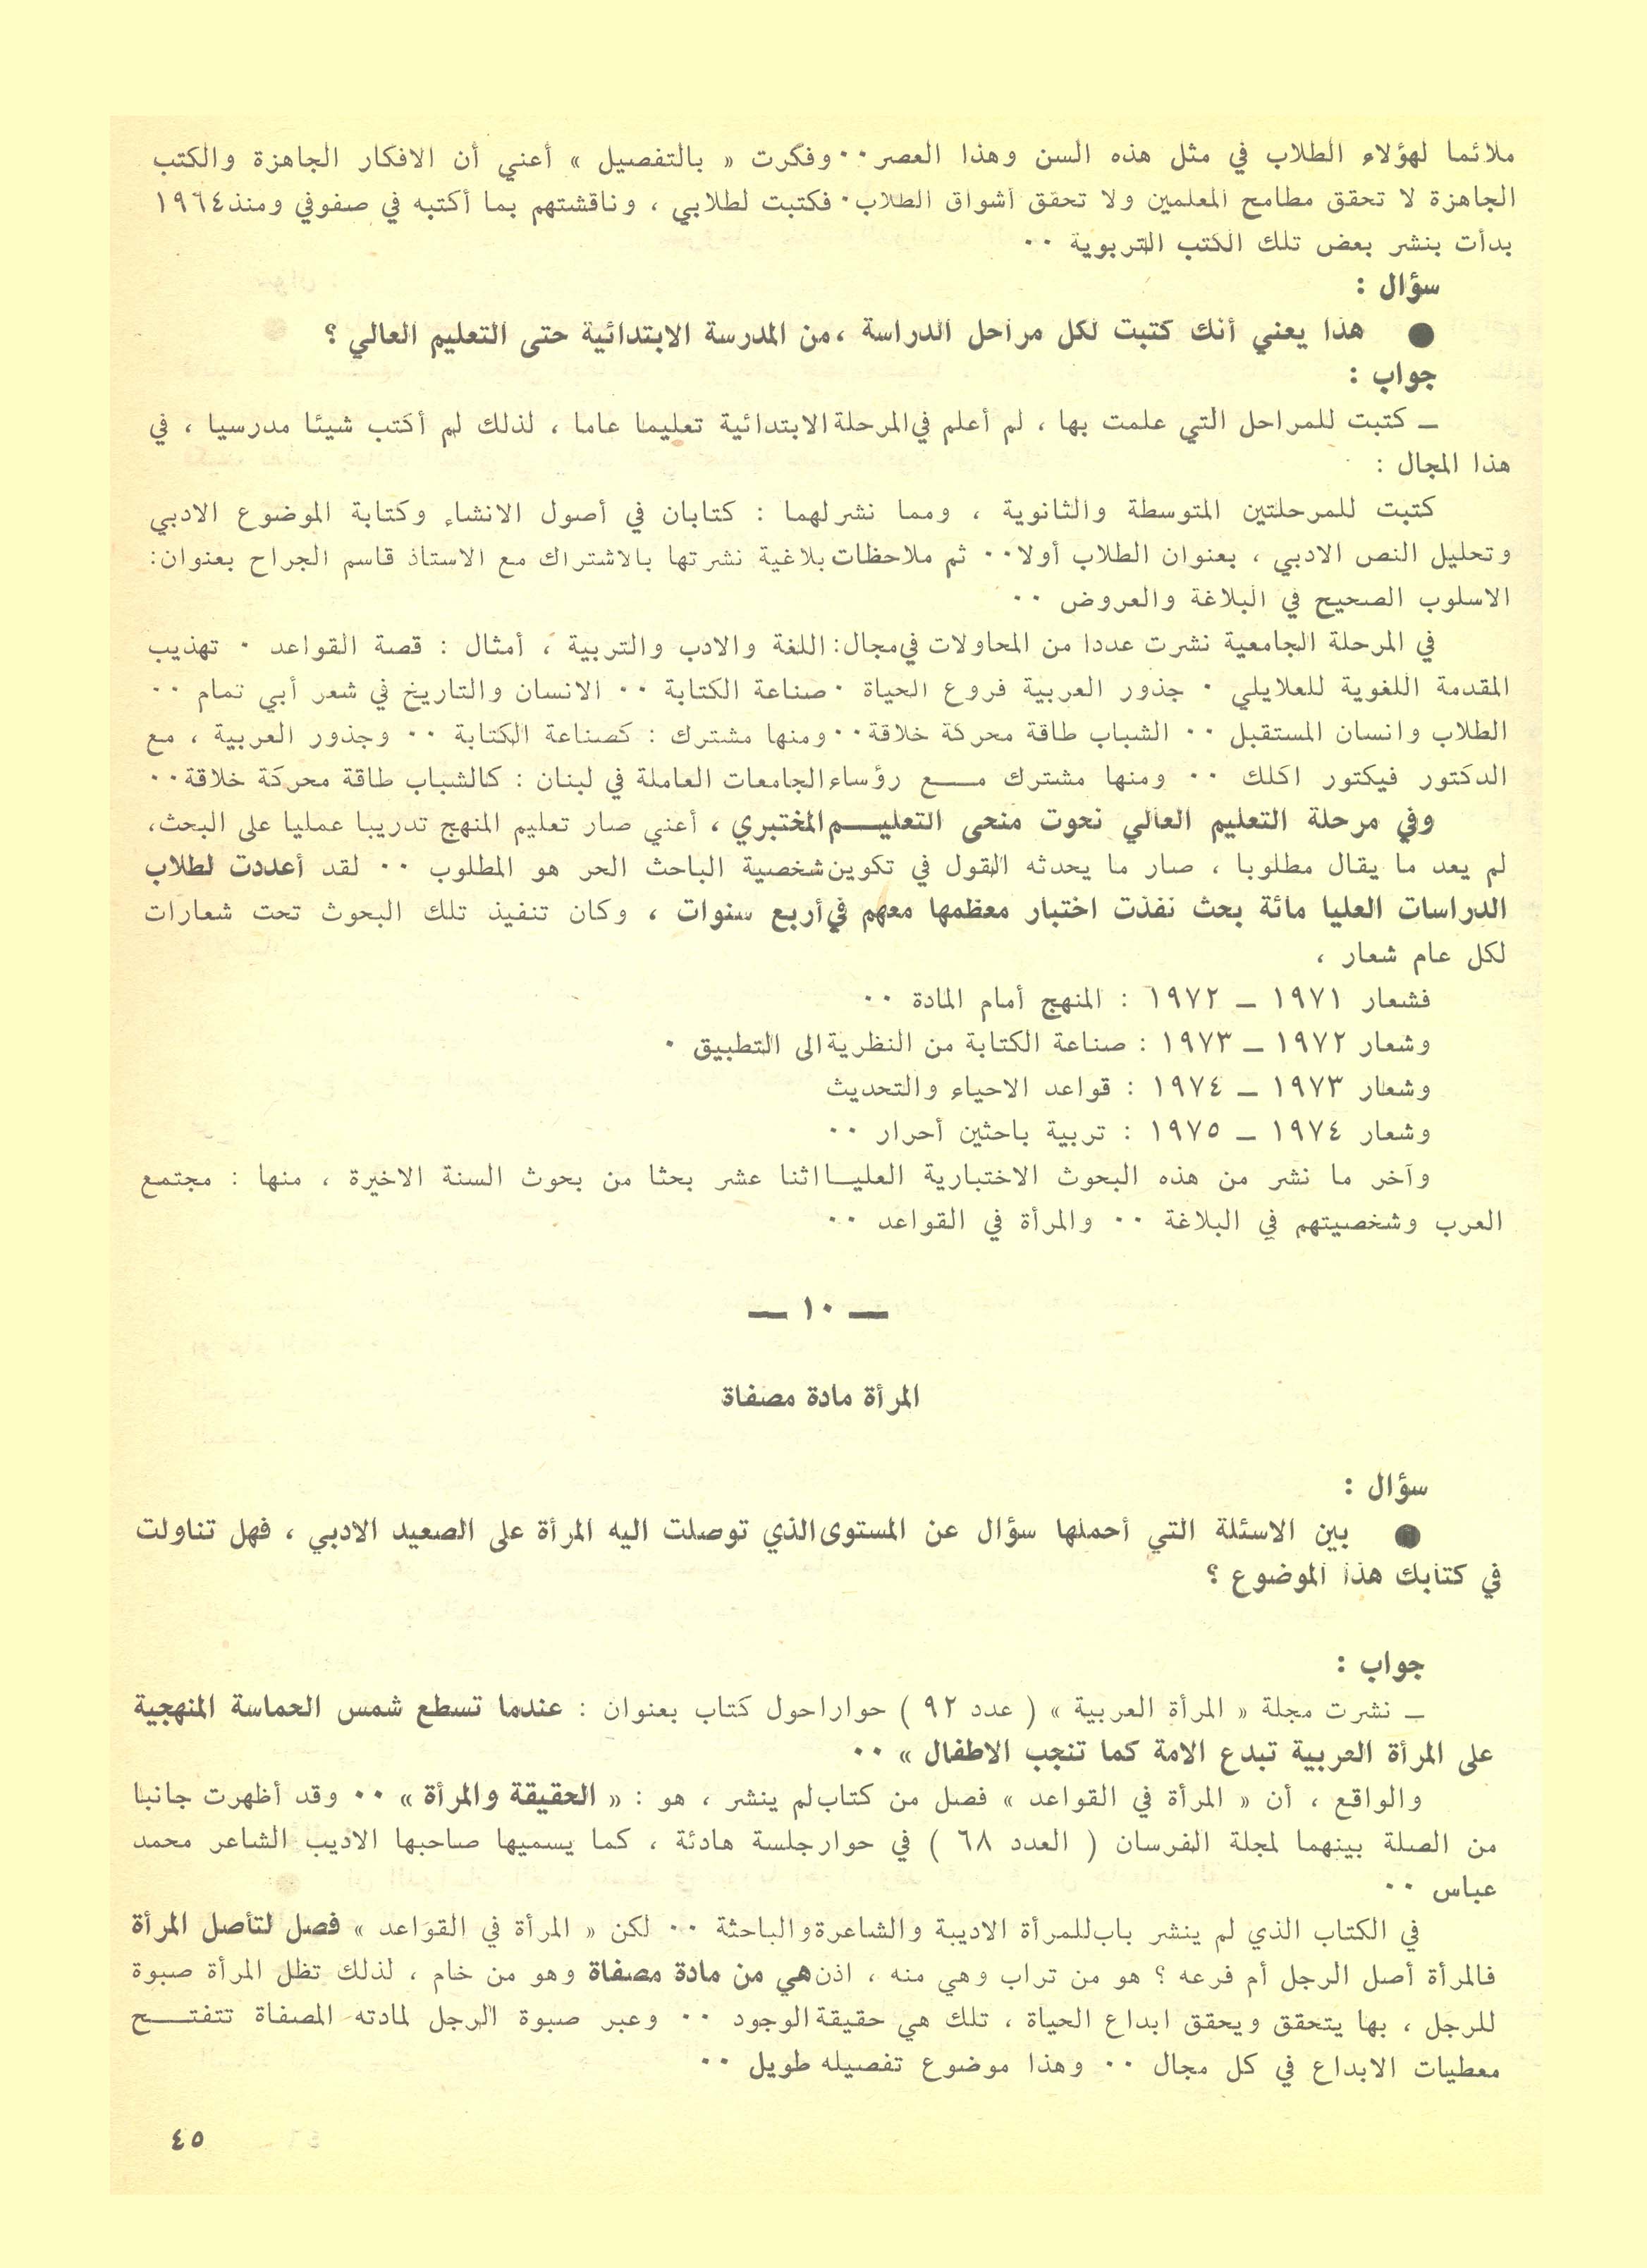 ملائما لهؤلاء الطلاب في مثل هذه السن وهذا العصر ٠٠ وفكرت « بالتفصيل » أعني أن الافكار الجاهزة والكتب
الجاهزة لا تحقق مطامح المعلمين ولا تحقق أشواق الطلاب ٠ فكتبت لطلابي ، وناقشتهم بما أكتبه في صفوفي ومنذ ١٩٦٤
بدأت بنشر بعض تلك الكتب التربوية ٠٠
سؤال :
● هذا يعني أنك كتبت لكل مراحل الدراسة ، من المدرسة الابتدائية حتى التعليم العالي ؟
جواب :
ـ كتبت للمراحل التي علمت بها ، لم أعلم في المرحلة الابتدائية تعليما عاما ، لذلك لم أكتب شيئا مدرسيا ، في
هذا المجال :
كتبت للمرحلتين المتوسطة والثانوية ، ومما نشر لهما : كتابان في أصول الانشاء وكتابة الموضوع الادبي
وتحليل النص الادبي ، بعنوان الطلاب أولا ٠٠ ثم ملاحظات بلاغية نشرتها بالاشتراك مع الاستاذ قاسم الجراح بعنوان :
الاسلوب الصحيح في البلاغة والعروض ٠٠
في المرحلة الجامعية نشرت عددا من المحاولات في مجال : اللغة والادب والتربية ، أمثال : قصة القواعد ٠ تهذيب
المقدمة اللغوية للعلايلي ٠ جذور العربية فروع الحياة ٠ صناعة الكتابة ٠٠ الانسان والتاريخ في شعر أبي تمام ٠٠
الطلاب وانسان المستقبل ٠٠ الشباب طاقة محركة خلاقة ٠٠ ومنها مشترك : كصناعة الكتابة ٠٠ وجذور العربية ، مع
الدكتور فيكتور اكلك ٠٠ ومنها مشترك مـــع رؤساء الجامعات العاملة في لبنان : كالشباب طاقة محركة خلاقة ٠٠
وفي مرحلة التعليم العالي نحوت منحى التعليـــم المختبري ، أعني صار تعليم المنهج تدريبا عمليا على البحث ،
لم يعد ما يقال مطلوبا ، صار ما يحدثه القول في تكوين شخصية الباحث الحر هو المطلوب ٠٠ لقد أعددت لطلاب
الدراسات العليا مائة بحث نفذت اختبار معظمها معهم في أربع سنوات ، وكان تنفيذ تلك البحوث تحت شعارات
لكل عام شعار ،
فشعار ١٩٧١ ـ ١٩٧٢ : المنهج أمام المادة ٠٠
وشعار ١٩٧٢ ـ ١٩٧٣ : صناعة الكتابة من النظرية الى التطبيق ٠
وشعار ١٩٧٣ ـ ١٩٧٤ : قواعد الاحياء والتحديث
وشعار ١٩٧٤ ـ ١٩٧٥ : تربية باحثين أحرار ٠٠
وآخر ما نشر من هذه البحوث الاختبارية العليـا اثنا عشر بحثا من بحوث السنة الاخيرة ، منها : مجتمع
العرب وشخصيتهم في البلاغة ٠٠ والمرأة في القواعد ٠٠
ـ ١٠ ـ
المرأة مادة مصفاة
سؤال :
● بين الاسئلة التي أحملها سؤال عن المستوى الذي توصلت اليه المرأة على الصعيد الادبي ، فهل تناولت
في كتابك هذا الموضوع ؟
جواب :
ـ نشرت مجلة « المرأة العربية » ( عدد ٩٢ ) حوارا حول كتاب بعنوان : عندما تسطع شمس الحماسة المنهجية
على المرأة العربية تبدع الامة كما تنجب الاطفال » ٠٠
والواقع ، أن « المرأة في القواعد » فصل من كتاب لم ينشر ، هو : « الحقيقة والمرأة » ٠٠ وقد أظهرت جانبا
من الصلة بينهما لمجلة الفرسان ( العدد ٦٨ ) في حوار جلسة هادئة ، كما يسميها صاحبها الاديب الشاعر محمد
عباس ٠٠
في الكتاب الذي لم ينشر باب للمرأة الاديبة والشاعرة والباحثة ٠٠ لكن « المرأة في القواعد » فصل لتأصل المرأة
فالمرأة أصل الرجل أم فرعه ؟ هو من تراب وهي منه ، اذن هي من مادة مصفاة وهو من خام ، لذلك تظل المرأة صبوة
للرجل ، بها يتحقق ويحقق ابداع الحياة ، تلك هي حقيقة الوجود ٠٠ وعبر صبوة الرجل لمادته المصفاة تتفتـــح
معطيات الابداع في كل مجال ٠٠ وهذا موضوع تفصيله طويل ٠٠
٤٥